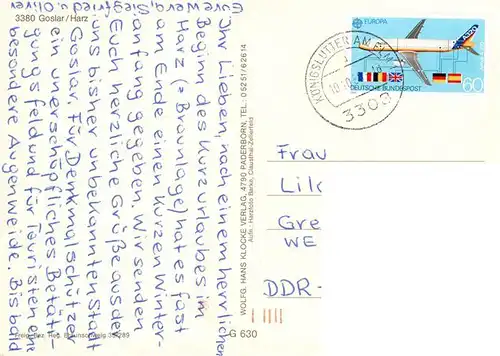 3380 Goslar/Harz
Ihr Lieben, nach einem herrlichen
Beginn des Kurzurlaubes im
Harz (= Braunlage) hat es fast
am Ende einen kurzen Winter-
anfang gegeben. Wir senden
Euch herzliche Grüße aus der
uns bisher unbekannten Stadt
Goslar, für Denkmalschützer
ein unerschöpfliches Betäti-
gungsfeld und für Touristen eine
besondere Augenweide. Bis bald
Eure Wera, Siegfried u. Oliver
Freig. Bez. Reg. Braunschweig
WOLFG. HANS KLOCKE VERLAG, 4790 PADERBORN, TEL.: 05251/62614
G 630
EUROPA
AIRBUS A320
DEUTSCHE BUNDESPOST
60
KÖNIGSLUTTER AM ELM
3308
Frau
Lil
Gre
WE
DDR-